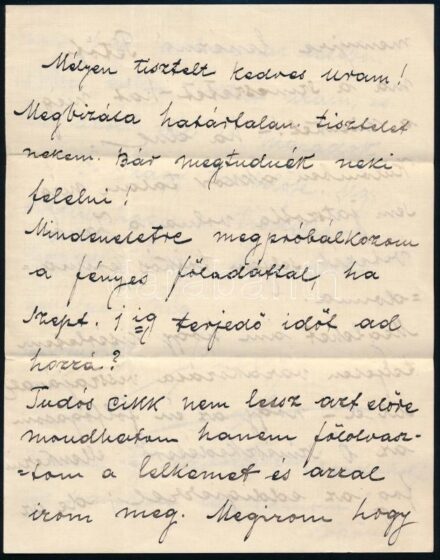 Mélyen tisztelt kedves Uram!
Megbizása határtalan tisztelet
nekem. Bár megtudnék neki
felelni!
Mindenesetre megpróbálkozom
a fényes föladattal, ha
Szept. 1 ig terjedő időt ad
hozzá?
Tudos cikk nem lessz azt előre
mondhatom hanem fölolvasz-
=tom a lelkemet és azzal
irom meg. Megirom hogy